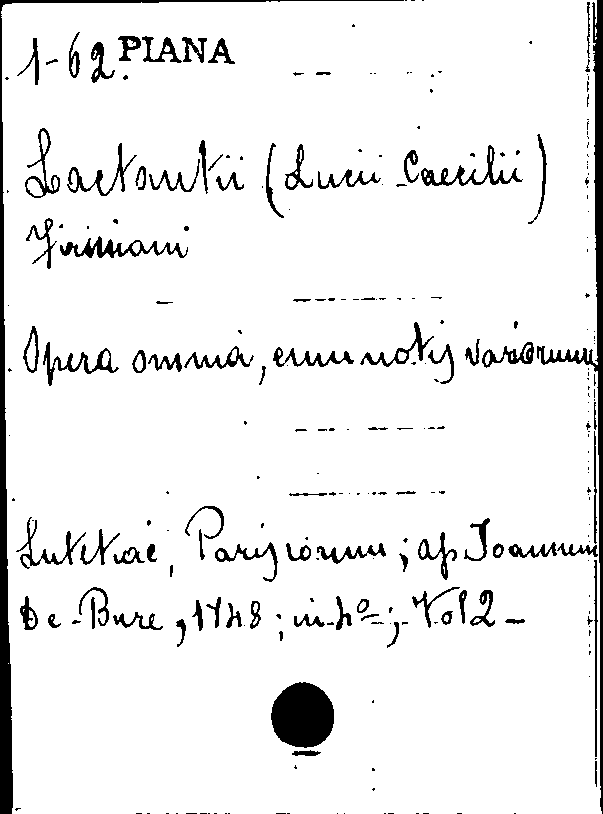 1-62. PIANA
Lactantii (Lucii Caecilii)
Firmiani
Opera omnia, cum notis variorum
Lutetiae, Parisiorum; ap. Joannem
De-Bure, 1748; in-4º; Vol 2-